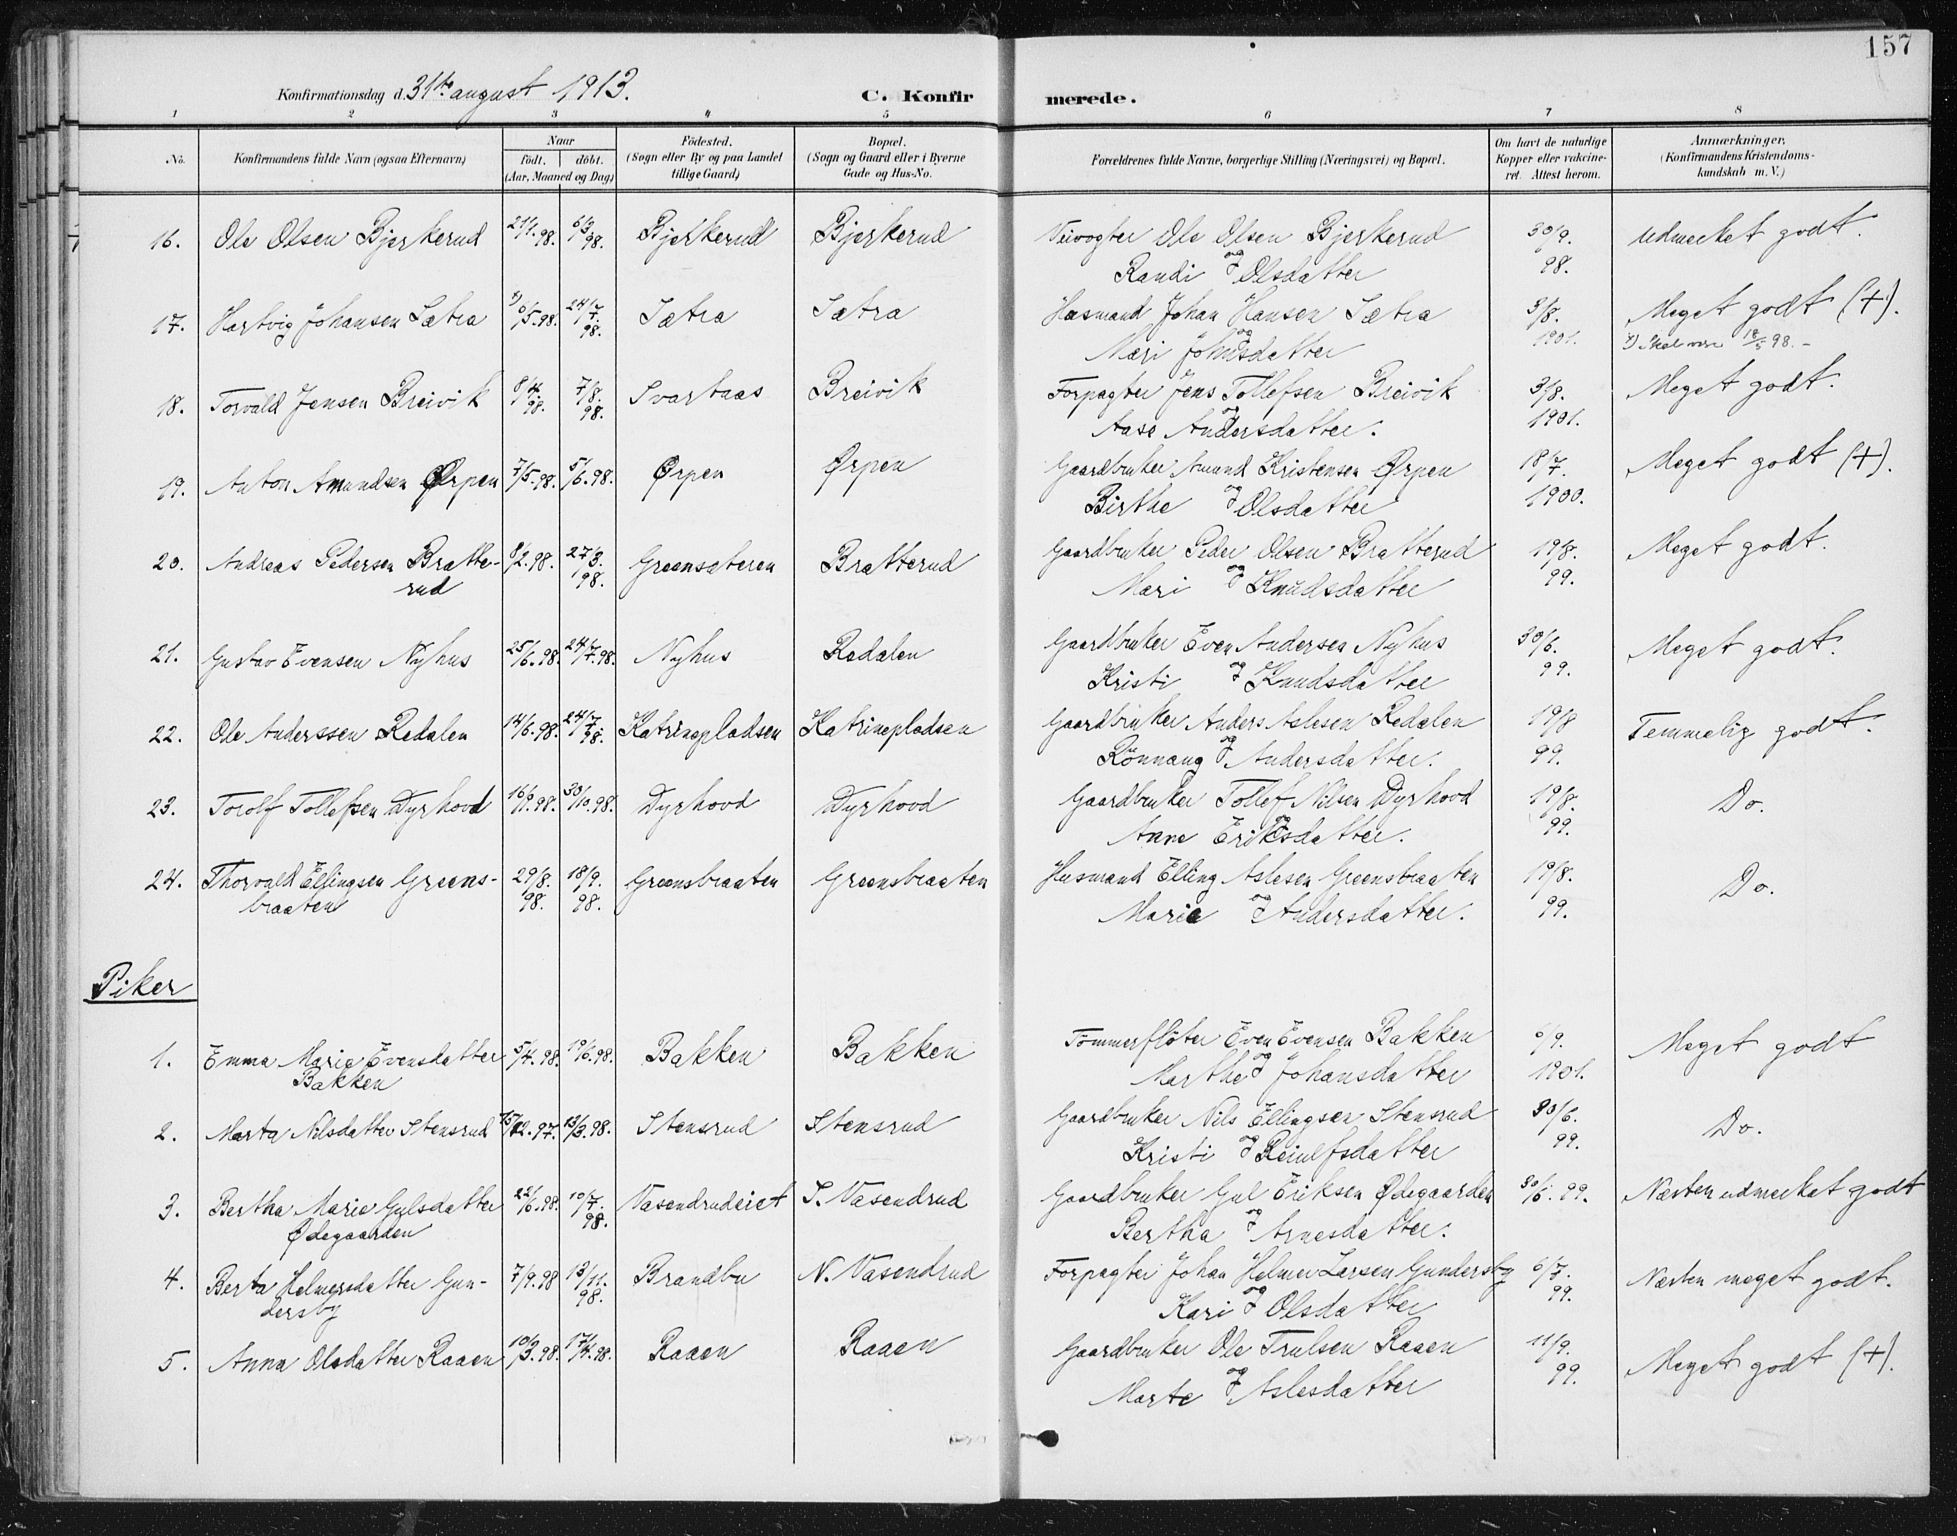 157
Konfirmationsdag d. 31te august 1913.
C. Konfirmerede.
1 2 3 4 5 6 7 8
No.
Konfirmandens fulde Navn (ogsaa Efternavn)
Naar
født.
döbt.
(Aar, Maaned og Dag)
Födested.
(Sogn eller By og paa Landet
tillige Gaard)
Bopæl.
(Sogn og Gaard eller i Byerne
Gade og Hus-No.
Forældrenes fulde Navne, borgerlige Stilling (Næringsvei) og Bopæl.
Om havt de naturlige
Kopper eller vakcine-
ret. Attest herom.
Anmærkninger.
(Konfirmandens Kristendoms-
kundskab m. V.)
16. Ole Olsen Bjerkerud 21/1.98. 6/3 98. Bjerkerud Bjerkerud Veivogter Ole Olsen Bjerkerud 30/9. udmerket godt.
og Randi Olsdatter 98.
17. Hartvig Johansen Sætra 24/7. 98. Sætra Sætra Husmand Johan Hansen Sætra 3/8. Meget godt (+).
og Mari Johnsdatter 1901. Skal være 18/5 98. –
18. Torvald Jensen Breivik 8/4. 98. 7/8. 98. Svartaas Breivik Forpagter Jens Tollefsen Breivik 3/8. Meget godt.
og Aase Andersdatter. 1901.
19. Anton Amundsen Ørpen 7/5.98. 5/6.98. Ørpen Ørpen Gaardbruker Amund Kristensen Ørpen 18/7. Meget godt (+).
Birthe og Olsdatter 1900.
20. Andreas Pedersen Bratte- 8/2.98. 27/3. Greensæteren Bratterud Gaardbruker Peder Olsen Bratterud 19/8. Meget godt.
rud 98. Mari og Knudsdatter 99.
21. Gustav Evensen Nyhus 25/6.98. 24/7.98. Nyhus Redalen Gaardbruker Even Andersen Nyhus 30/6. Meget godt.
Kristi og Knudsdatter 99.
22. Ole Anderssen Redalen 14/6.98. 24/7. 98. Katrinepladsen Katrinepladsen Gaardbruker Anders Aslesen Redalen 19/8 Temmelig godt.
Rönnaug og Andersdatter. 99.
23. Torolf Tollefsen Dyrhovd 16/9.98. 30/10.98. Dyrhovd Dyrhovd Gaardbruker Tollef Nilsen Dyrhovd 19/8. Do.
og Anne Eriksdatter. 99.
24. Thorvald Ellingsen Greens- 29/8. 18/9. Greensbraaten Greensbraaten Husmand Elling Aslesen Greensbraaten 19/8. Do.
braaten 98. 98. Marie og Andersdatter. 99.
Piker
1. Emma Marie Evensdatter 5/4.98. 19/6.98. Bakken Bakken Tömmerflöter Even Evensen Bakken Meget godt
Bakken Marthe og Johansdatter 1901.
2. Marta Nilsdatter Stensrud 13/3.98. Stensrud Stensrud Gaardbruker Nils Ellingsen Stensrud 30/6. Do.
Kristi og Reiulfsdatter 99.
3. Bertha Marie Gulsdatter 22/6.98. 10/7. 98. Vasendrudeiet S. Vasendrud Gaardbruker Gul Eriksen Ødegaarden 30/6. 99. Næsten udmerket godt
Ødegaarden Bertha og Arnesdatter.
4. Berta Helmersdatter Gun- 7/9.98 13/11. 98. Brandbu N. Vasendrud Forpagter Johan Helmer Larsen Gundersby 6/7. Næsten meget godt.
dersby Kari og Olsdatter 99.
5. Anna Olsdatter Raaen 10/3.98. 17/4.98. Raaen Raaen Gaardbruker Ole Trulsen Raaen 11/9. Meget godt (+).
Marte og Aslesdatter 99.